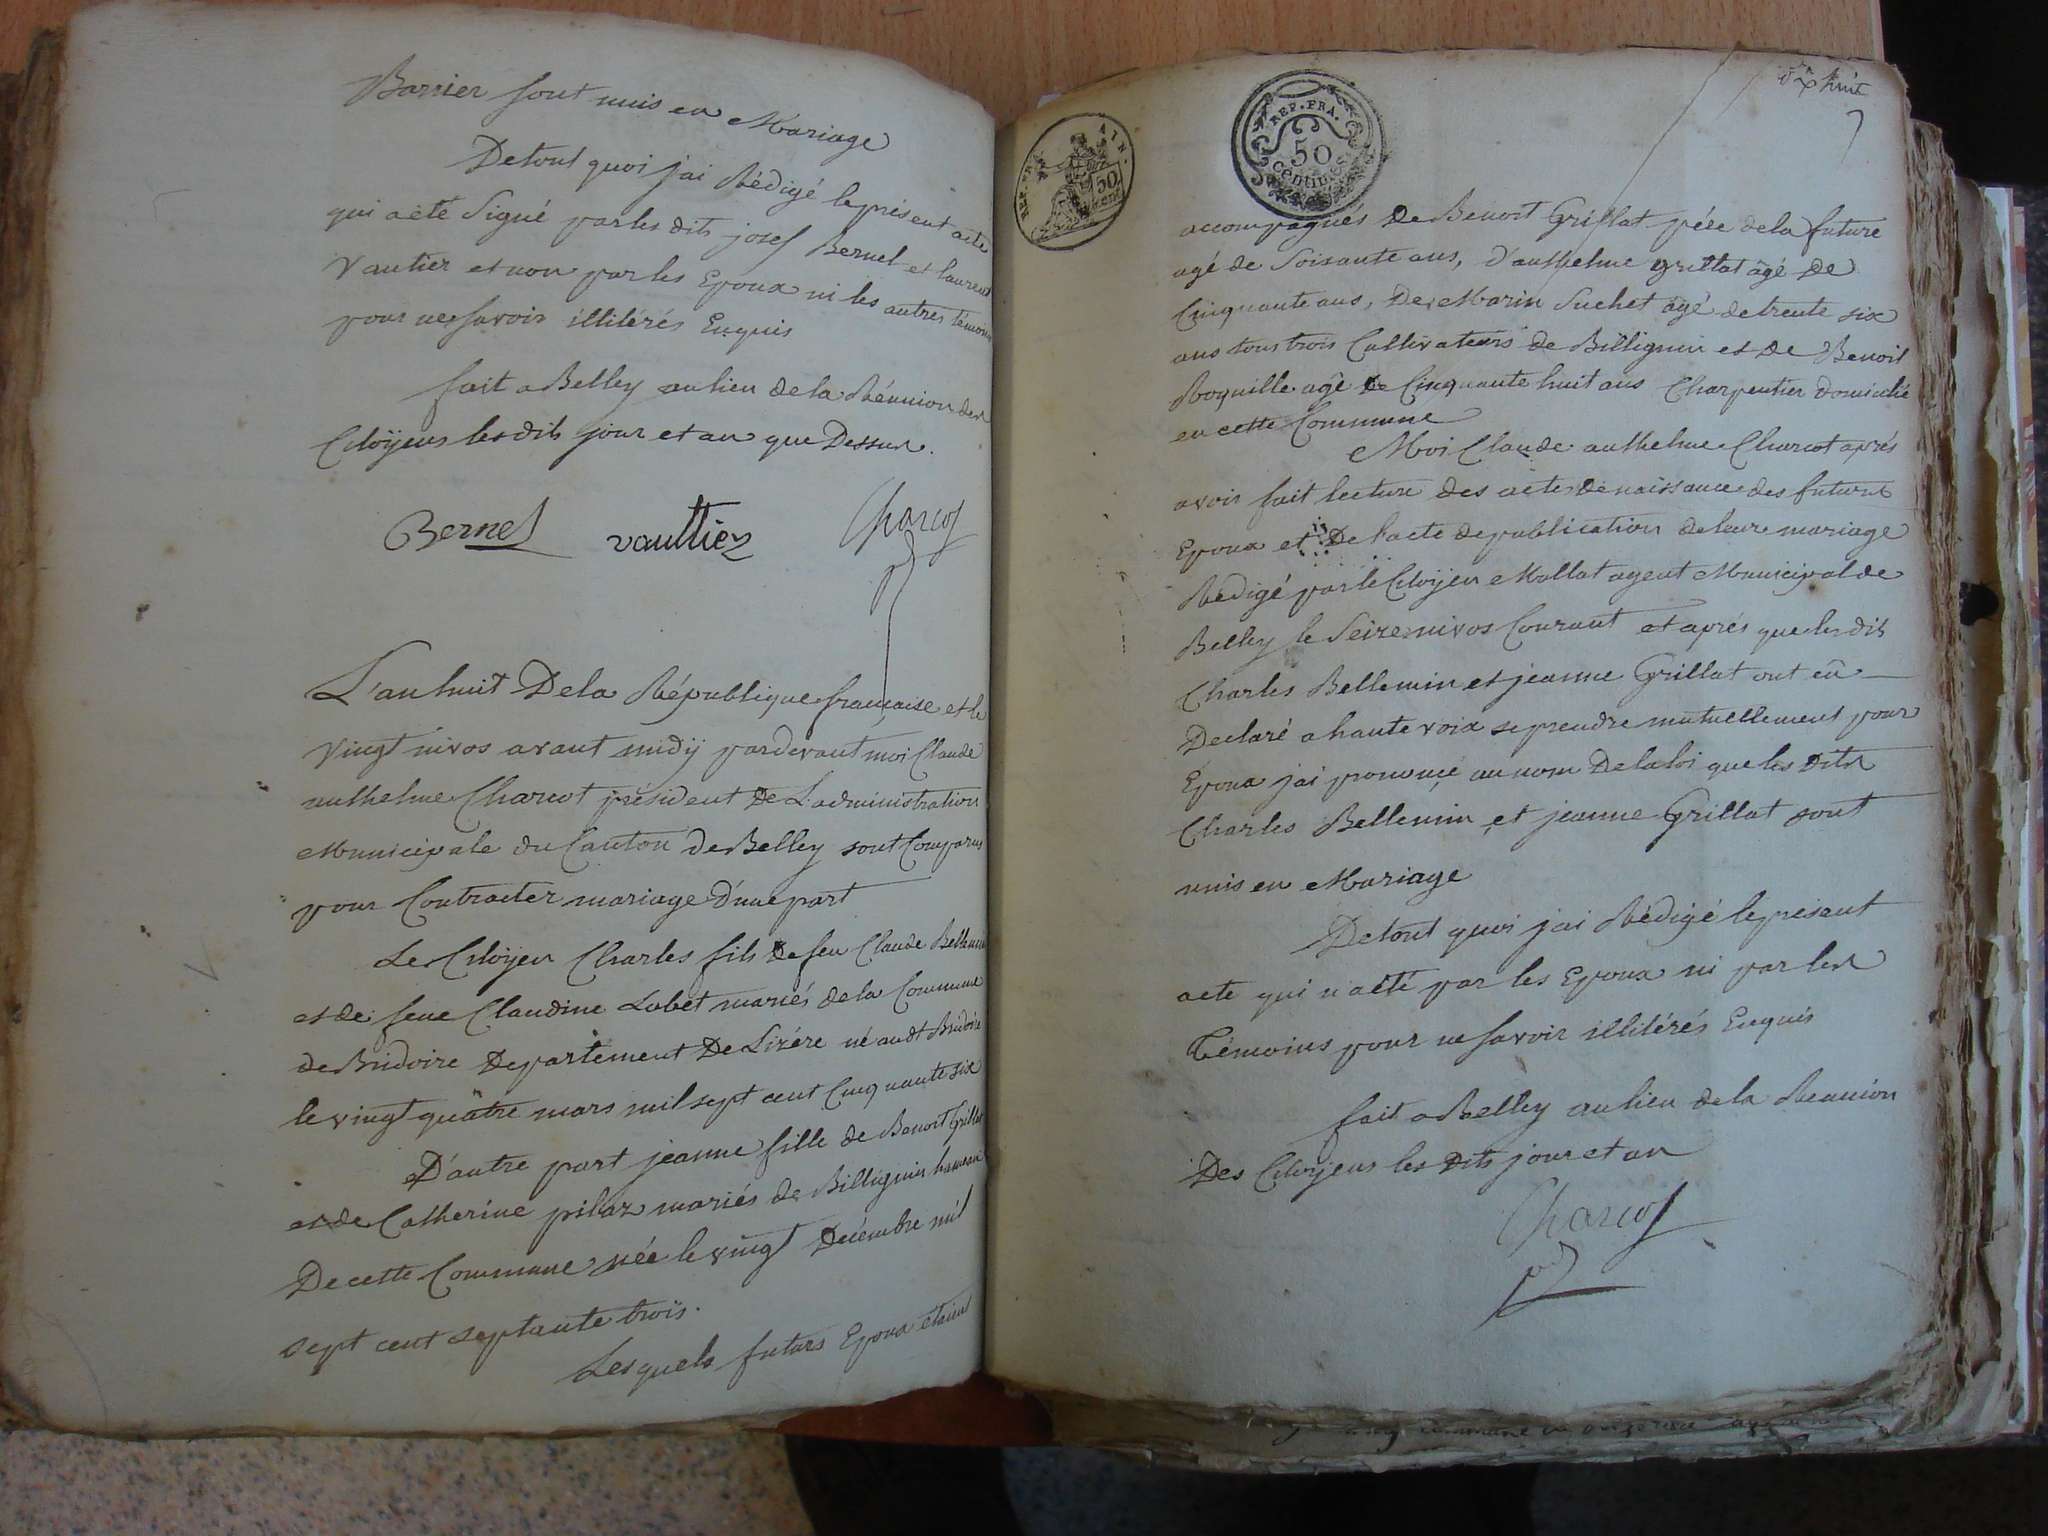 Barrier sont unis en Mariage
De tout quoi j'ai Rédigé le présent acte
qui a eté Signé par les dits josef Bernel et laurent
Vautier et non par les Epoux ni les autres témoins
pour ne savoir illitérés Enquis
fait a Belley au lieu de la Réunion des
Citoÿens lesdits jour et an que Dessus.
Bernel vaultier Charcot
L'an huit De la République française et le
Vingt nivos avant midÿ pardevant moi Claude
anthelme Charcot président De L'administration
Municipale du Canton de Belley sont Comparus
pour Contracter mariage d'une part
Le Citoÿen Charles fils De feu Claude Bellemin
et de feue Claudine Lubet mariés de la Commune
de Bridoire Departement De Lizére né audt Bridoire
le vingt quatre mars mil sept cent Cinquante six
D'autre part jeanne fille de Benoit Grillat
et de Catherine pilaz mariés de Billignin hameau
De cette Commune née le vingt Décembre mil
sept cent septante trois.
Lesquels futurs Epoux étaient
huit
7
REP. FRA. AIN.
50
REP. FRA.
50
Centimes
accompagnés De Benoit Grillat pére de la future
agé de Soisante ans, d'anthelme grillat âgé De
Cinquante ans, De Marin Suchet âgé de trente six
ans tous trois Cultivateurs de Billignin et De Benoit
Roquille agé De Cinquante huit ans Charpentier domicilié
en cette Commune
Moi Claude anthelme Charcot aprés
avoir fait lecture des actes de naissance des futurs
Epoux et De l'acte de publication de leur mariage
Rédigé par le Citoÿen Mollat agent Municipal de
Belley le Seize nivos Courant et aprés que les dits
Charles Bellemin et jeanne Grillat ont eû
Declaré a haute voix se prendre mutuellement pour
Epoux j'ai prononcé au nom De la loi que les dits
Charles Bellemin et jeanne Grillat sont
unis en Mariage
De tout quoi j'ai Rédigé le présent
acte qui n'a eté par les Epoux ni par les
Témoins pour ne savoir illitérés Enquis
fait a Belley au lieu de la Reunion
Des Citoÿens les Dits jour et an
Charcot